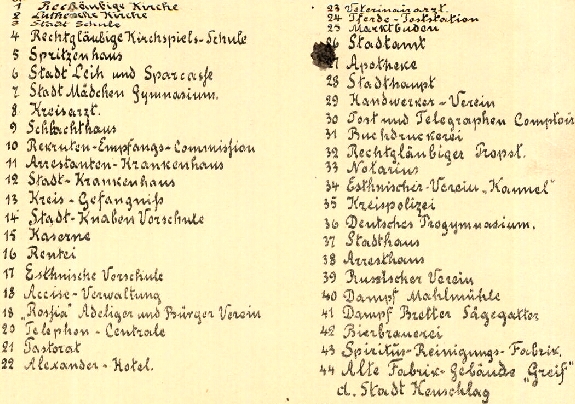 1 Rechtgläubige Kirche
2 Lutherische Kirche
3 Stadt Schule
4 Rechtgläubige Kirchspiels-Schule
5 Spritzenhaus
6 Stadt Leih und Sparcasse
7 Stadt Mädchen Gymnasium.
8 Kreisarzt.
9 Schlachthaus
10 Rekruten-Empfangs-Commission
11 Arrestanten-Krankenhaus
12 Stadt-Krankenhaus
13 Kreis-Gefängniß
14 Stadt-Knaben Vorschule
15 Kaserne
16 Rentei
17 Esthnische Vorschule
18 Accise-Verwaltung
18 „Rossia" Adeliger und Bürger Verein
20 Telephon-Centrale
21 Pastorat
22 Alexander-Hotel.
23 Veterinairarzt.
24 Pferde-Poststation
25 Marktbuden
26 Stadtamt
27 Apotheke
28 Stadthaupt
29 Handwerker-Verein
30 Post und Telegraphen Comptoir
31 Buchdruckerei
32 Rechtgläubiger Propst.
33 Notarius
34 Esthnischer-Verein „Kannel"
35 Kreispolizei
36 Deutsches Progymnasium.
37 Stadthaus
38 Arresthaus
39 Russischer Verein
40 Dampf Mahlmühle
41 Dampf Bretter Sägegatter
42 Bierbrauerei
43 Spiritus-Reinigungs-Fabrik.
44 Alte Fabrik-Gebäude „Greif"
d. Stadt Heuschlag